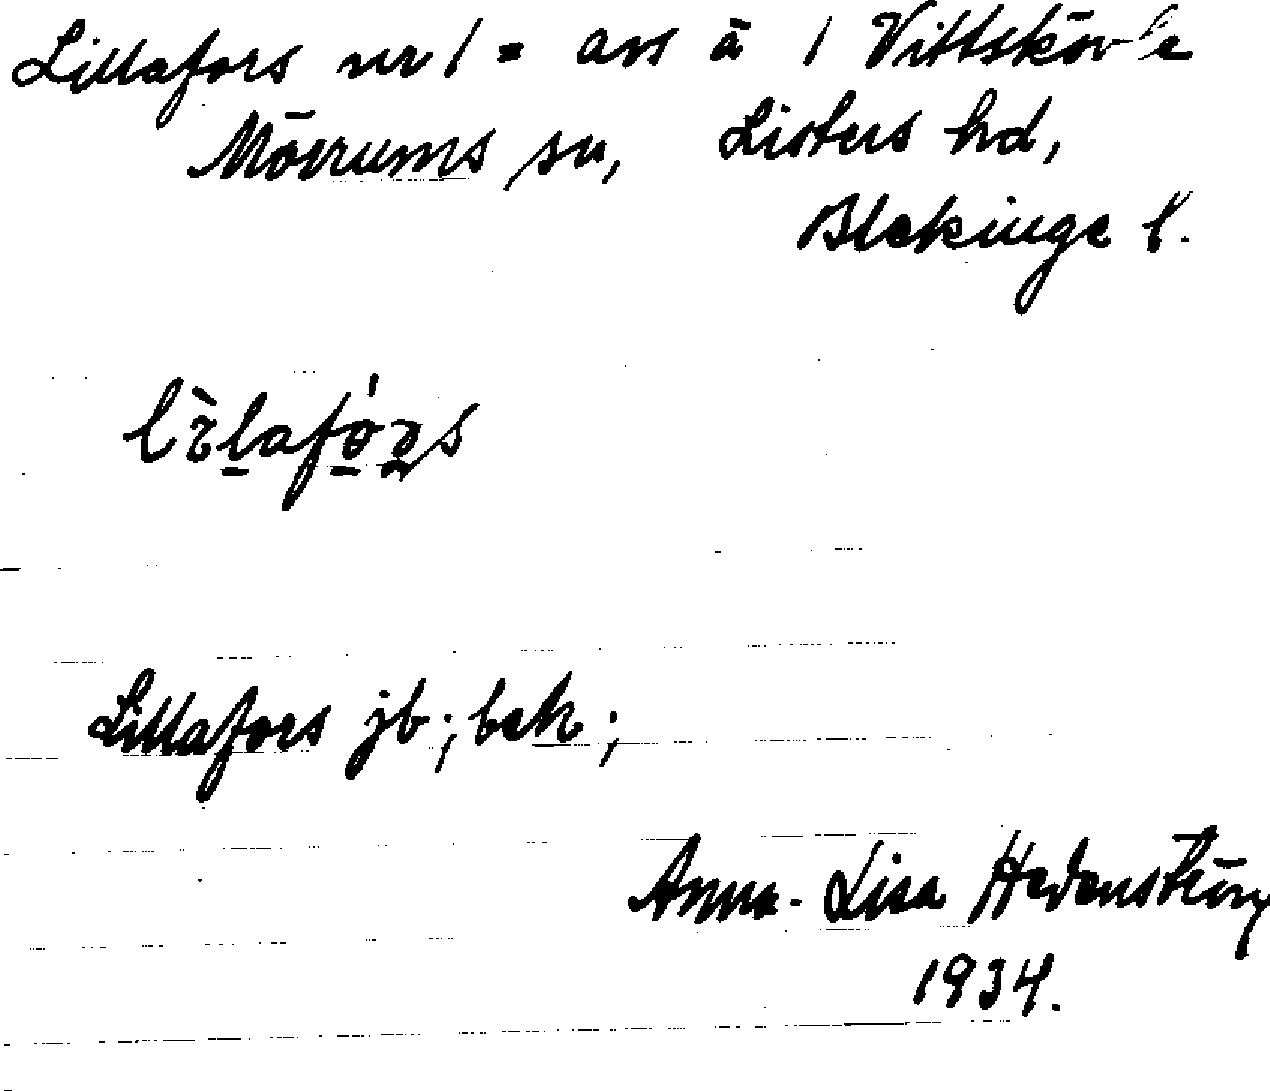 Lillafors nr 1 = avs å 1 Vittskövle
Mörrums sn, Listers hd,
Blekinge l.
Lillafors jb; bek;
Anna-Lisa Hedenstierna
1934.